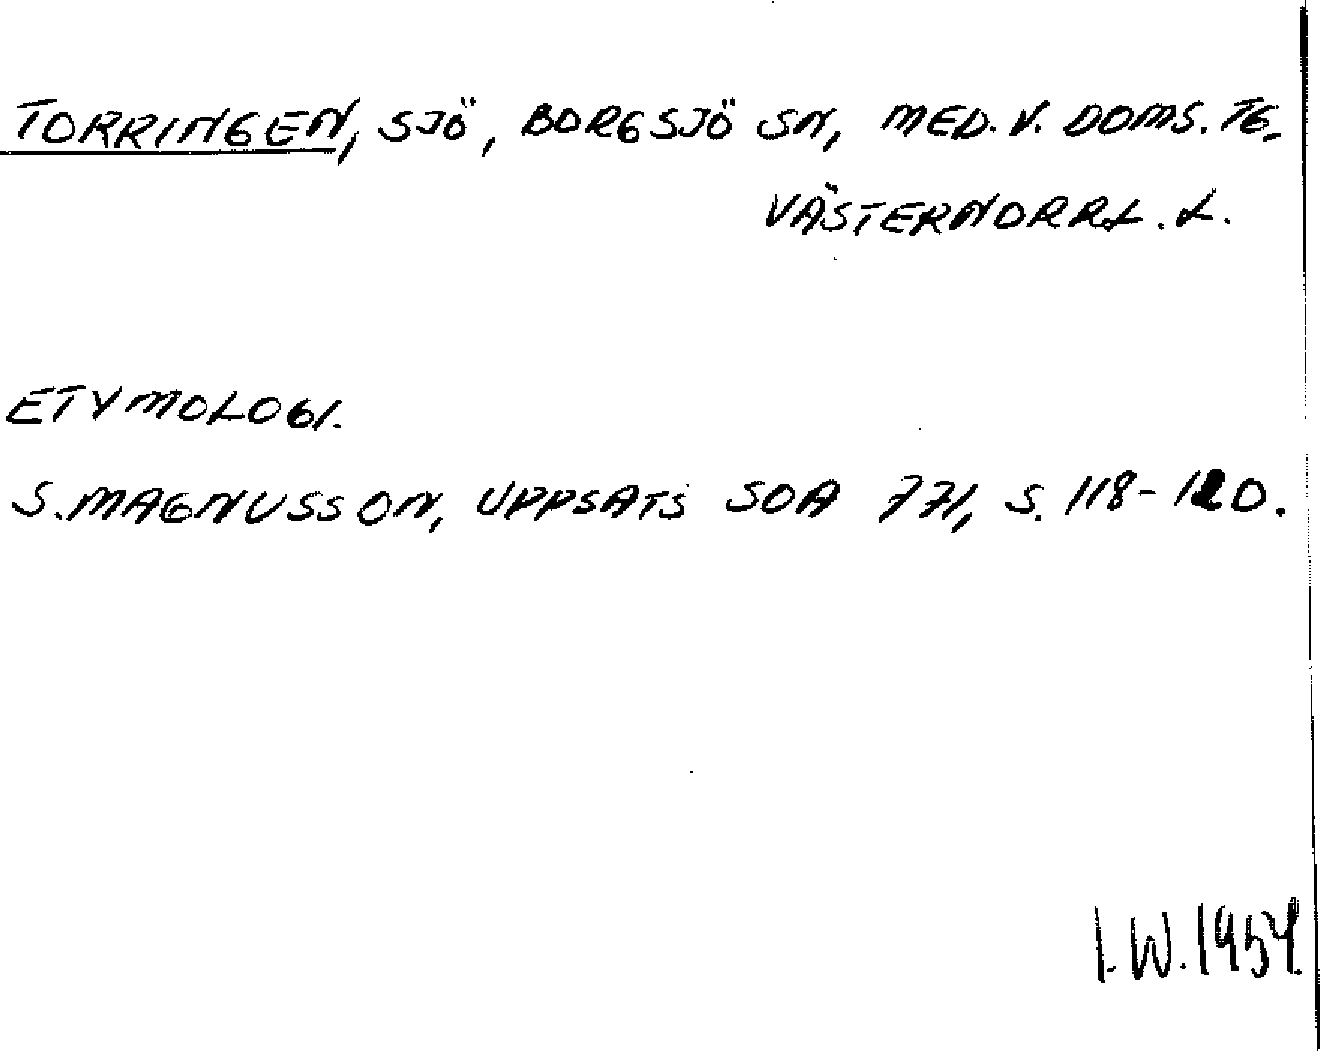 TORRINGEN, SJÖ, BORGSJÖ SN, MED. V. DOMS. TG.
VÄSTERNORRL. L.
ETYMOLOGI.
S. MAGNUSSON, UPPSATS SOA 771, S. 118-120.
I. W. 1954.